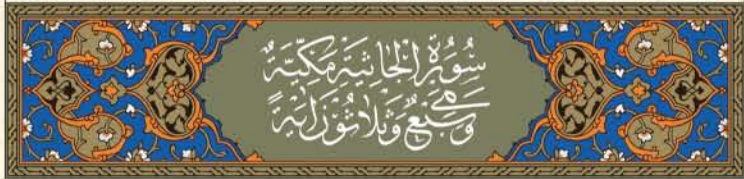 سُورَةُ الْجَاثِيَةِ مَكِّيَّةٌ
وَهِيَ سَبْعٌ وَثَلَاثُونَ آيَةً